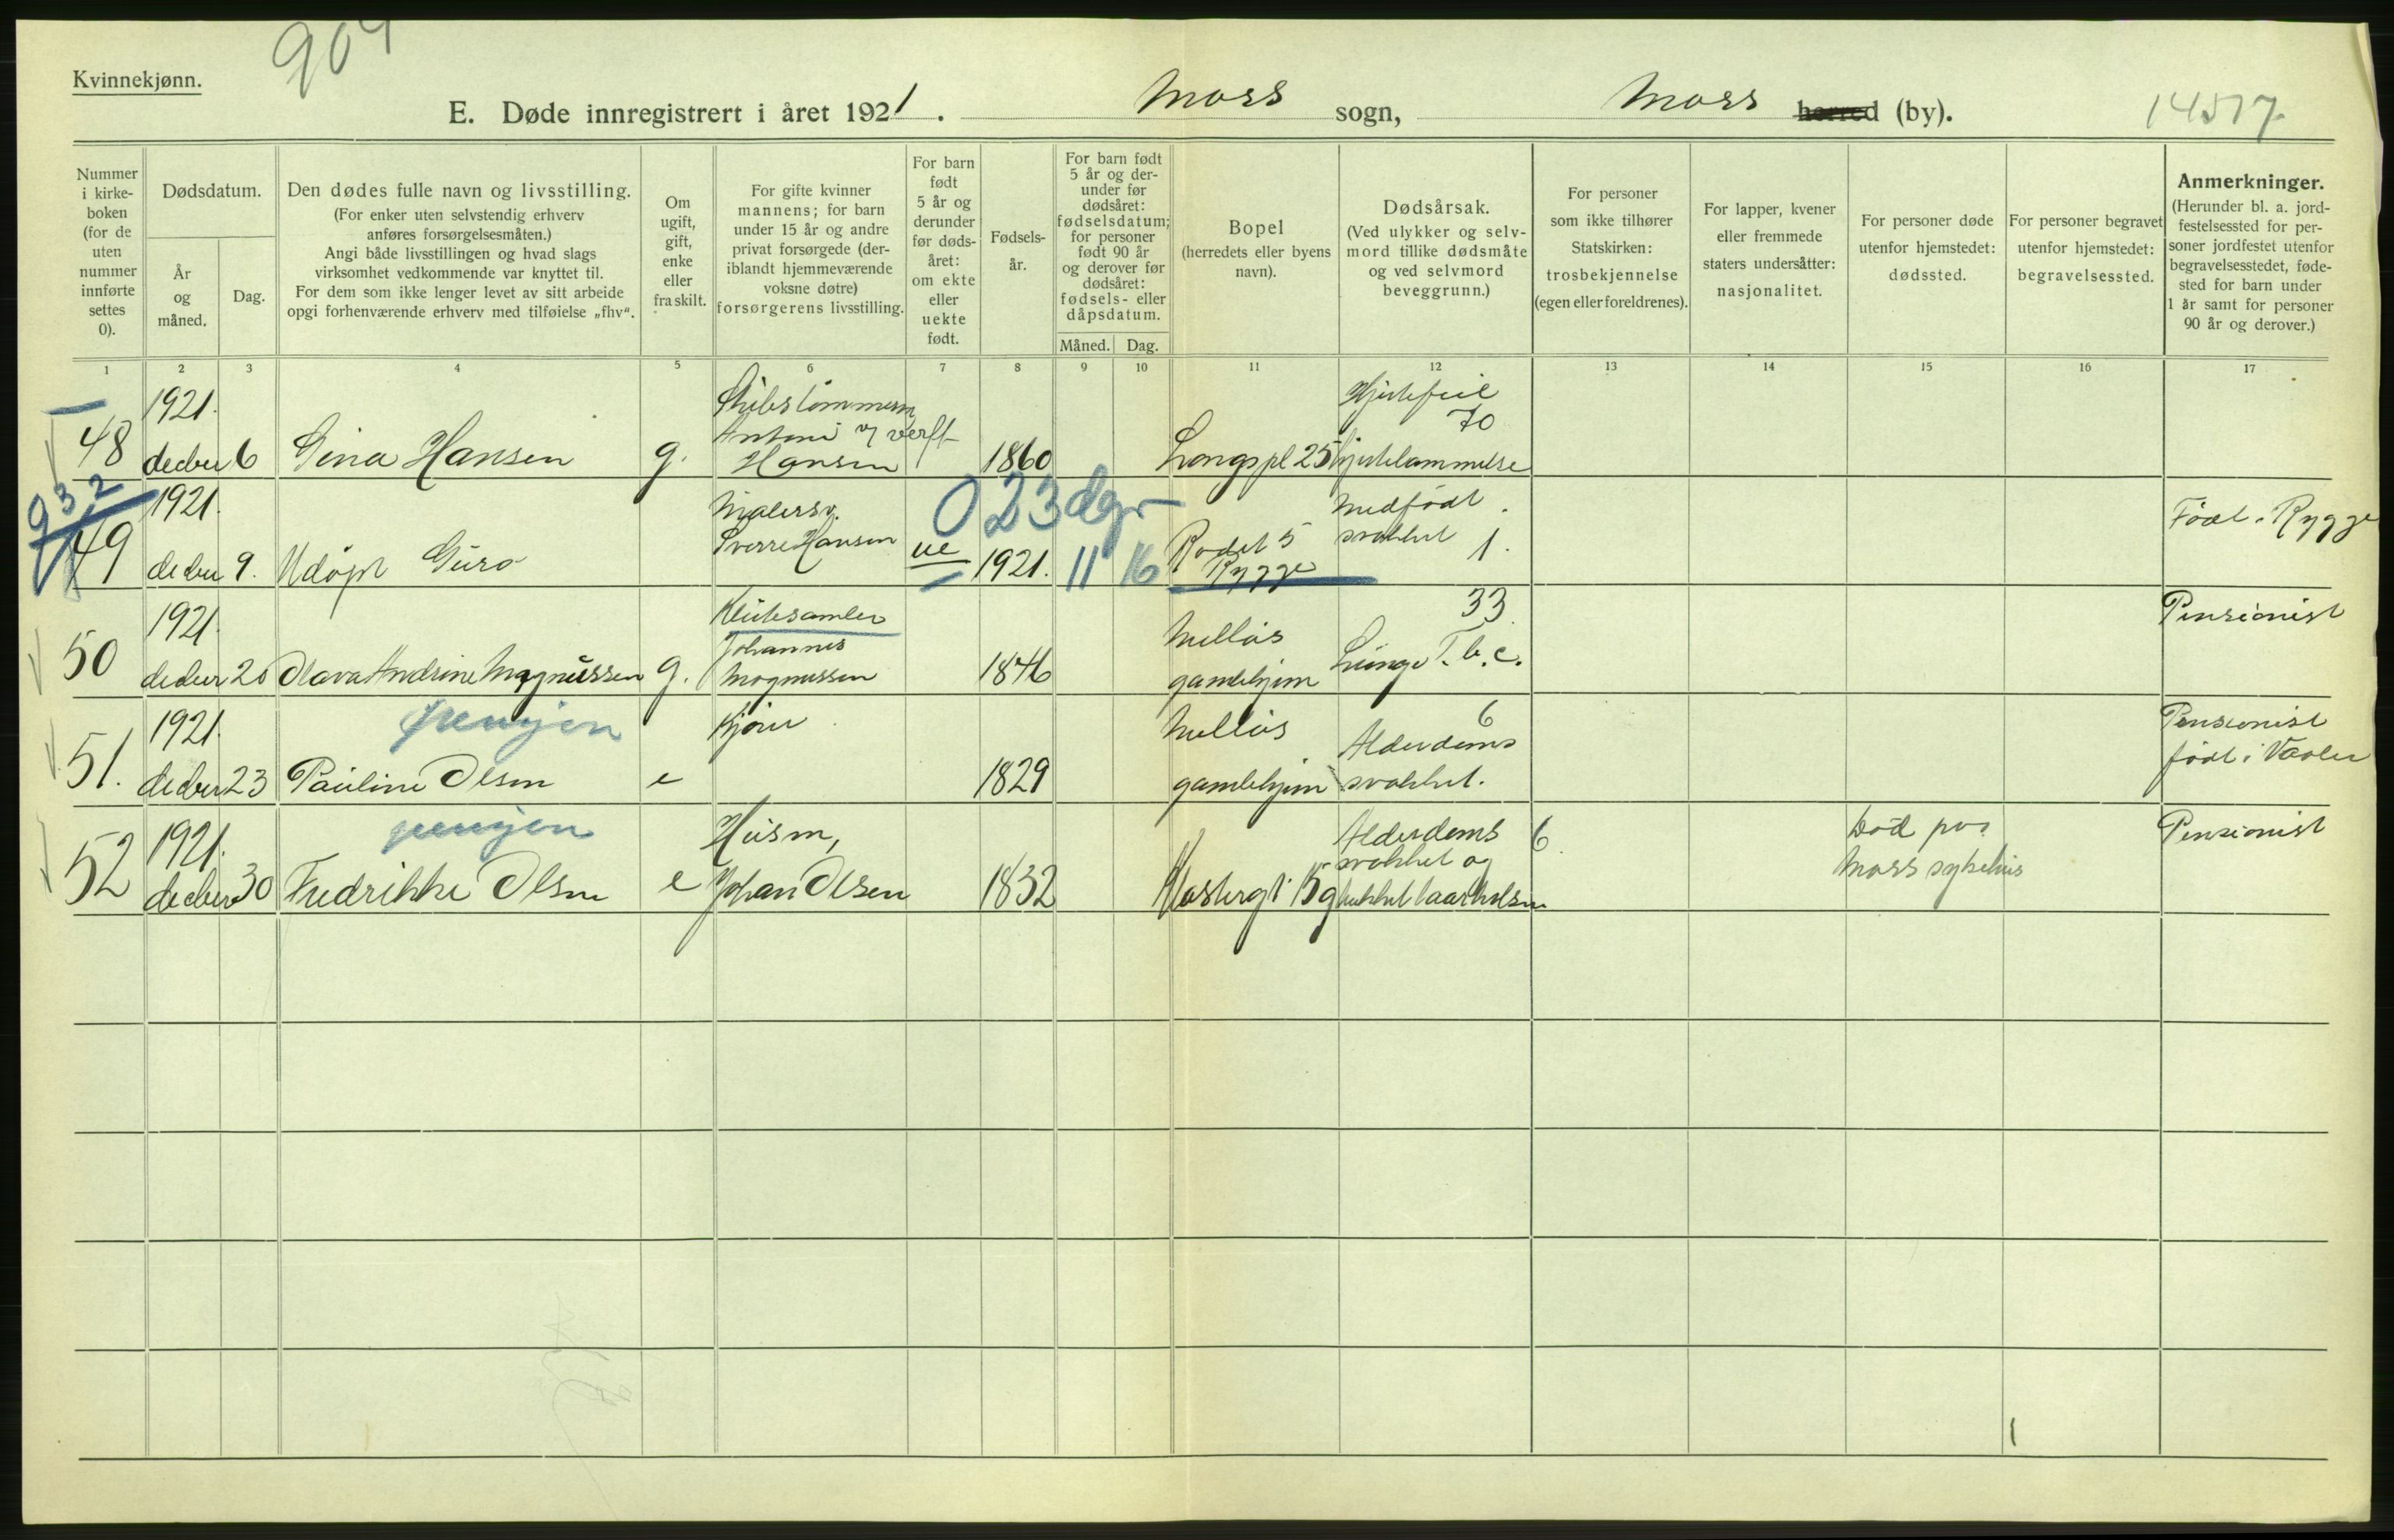 904
Kvinnekjønn.
E. Døde innregistrert i året 1921. Moss sogn, Moss herred (by). 14517.
Nummer i kirke-boken (for de uten nummer innførte settes 0).
Dødsdatum.
År og måned.
Dag.
Den dødes fulle navn og livsstilling.
(For enker uten selvstendig erhverv
anføres forsørgelsesmåten.)
Angi både livsstillingen og hvad slags
virksomhet vedkommende var knyttet til.
For dem som ikke lenger levet av sitt arbeide
opgi forhenværende erhverv med tilføielse „fhv“.
Om
ugift,
gift,
enke
eller
fraskilt.
For gifte kvinner
mannens; for barn
under 15 år og andre
privat forsørgede (der-
iblandt hjemmeværende
voksne døtre)
forsørgerens livsstilling.
For barn
født
5 år og
derunder
før døds-
året:
om ekte
eller
uekte
født.
Fødsels-
år.
For barn født
5 år og der-
under før
dødsåret:
fødselsdatum;
for personer
født 90 år
og derover før
dødsåret:
fødsels- eller
dåpsdatum.
Måned. Dag.
Bopel
(herredets eller byens
navn).
Dødsårsak.
(Ved ulykker og selv-
mord tillike dødsmåte
og ved selvmord
beveggrunn.)
For personer
som ikke tilhører
Statskirken:
trosbekjennelse
(egen eller foreldrenes).
For lapper, kvener
eller fremmede
staters undersåtter:
nasjonalitet.
For personer døde
utenfor hjemstedet:
dødssted.
For personer begravet
utenfor hjemstedet:
begravelsessted.
Anmerkninger.
(Herunder bl. a. jord-
festelsessted for per-
soner jordfestet utenfor
begravelsesstedet, føde-
sted for barn under
1 år samt for personer
90 år og derover.)
1 2 3 4 5 6 7 8 9 10 11 12 13 14 15 16 17
48
1921.
decber 6
Gina Hansen
g.
Skibstømmerm
Antoni v/ verft
Hansen
1860
Langpl 25
Hjertefeil
70
hjertelammelse
932
49
1921.
decber 9.
Udøpt Guro
Malersv.
Sverre Hansen
ue
0 23 dgr
1921. 11 16
Rødet 5
Rygge
Medfødt
svakhet 1.
Født i Rygge
50
1921.
decber 20
Olava Andrine Magnussen
g.
Klutesamler
Johannes
Magnussen
1846
Melløs
gamlehjem
33
Lunge T.b.c.
Pensionist
51.
1921.
decber 23
Pauline Olsen
e
1829
Melløs
gamlehjem
6
Alderdoms
svakhet.
Pensionist
født i Vaaler
52
1921.
decber 30
Fredrikke Olsen
e
Husm,
Johan Olsen
1832
15 g
Alderdoms 6
svakhet og
brukket laarhalsen
Død paa
Moss sykehus
Pensionist